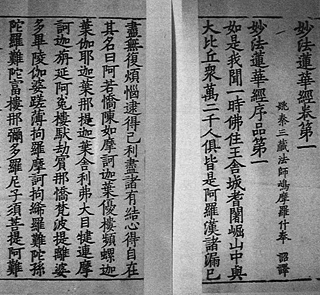 妙法蓮華經卷第一
姚秦三藏法師鳩摩羅什奉　詔譯
妙法蓮華經序品第一
如是我聞一時佛住王舍城耆闍崛山中與
大比丘衆萬二千人俱皆是阿羅漢諸漏已
盡無復煩惱逮得己利盡諸有結心得自在
其名曰阿若憍陳如摩訶迦葉優樓頻螺迦
葉伽耶迦葉那提迦葉舍利弗大目犍連摩
訶迦旃延阿㝹樓馱劫賓那憍梵波提離婆
多畢陵伽婆蹉薄拘羅摩訶拘絺羅難陀孫
陀羅難陀富樓那彌多羅尼子須菩提阿難